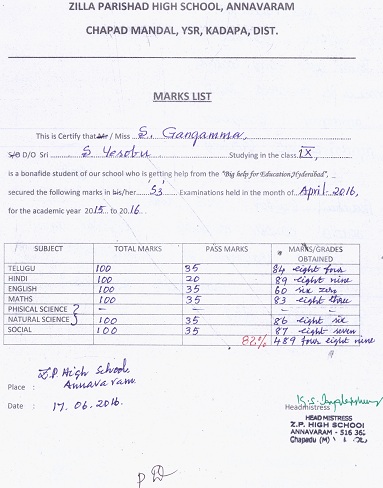 ZILLA PARISHAD HIGH SCHOOL, ANNAVARAM
CHAPAD MANDAL, YSR, KADAPA, DIST.
MARKS LIST
This is Certify that Mr / Miss S. Gangamma,
S/O D/O Sri S Yesobu Studying in the class IX,
is a bonafide student of our school who is getting help from the "Big help for Education, Hyderabad",
secured the following marks in his/her S3 Examinations held in the month of April 2016,
for the academic year 2015 to 2016.
SUBJECT TOTAL MARKS PASS MARKS MARKS/GRADES OBTAINED
TELUGU 100 35 84 eight four
HINDI 100 20 89 eight nine
ENGLISH 100 35 60 six zero
MATHS 100 35 83 eight three
PHISICAL SCIENCE } — — —
NATURAL SCIENCE 100 35 86 eight six
SOCIAL 100 35 87 eight seven
82% 489 four eight nine
Place : Z.P. High School Annavaram
Date : 17.06.2016.
Headmistress
HEADMISTRESS
Z.P. HIGH SCHOOL
ANNAVARAM - 516 36
Chapadu (M)